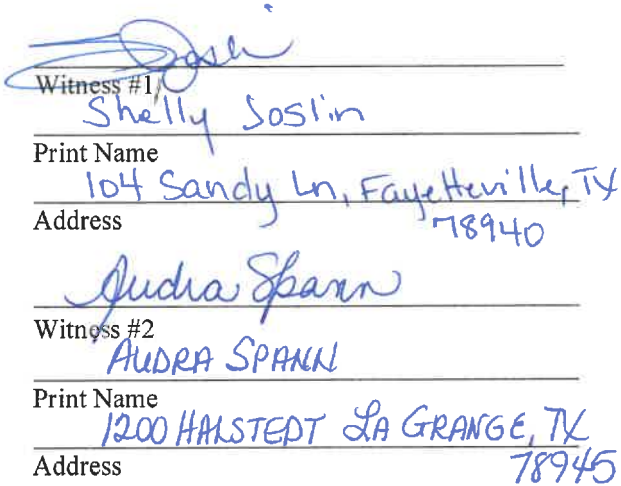 Witness #1
Shelly Joslin
Print Name
104 Sandy Ln, Fayetteville, TX
78940
Address
Audra Spann
Witness #2
AUDRA SPANN
Print Name
1200 HALSTEDT LA GRANGE, TX
78945
Address